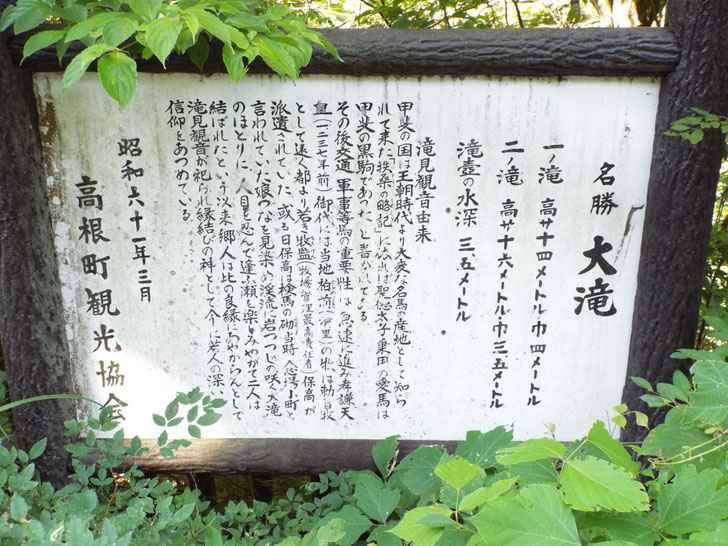 名勝 大滝
一ノ滝 高サ十四メートル巾四メートル
二ノ滝 高サ十六メートル巾三、五メートル
滝壺の水深 三、五メートル
滝見観音由来
甲斐の国は王朝時代より大変な名馬の産地として知ら
れて来た「扶桑の略記」に依れば聖徳太子乗用の愛馬は
甲斐の黒駒であったと書かれている
その後交通、軍事等馬の重要性は急速に進み孝謙天
皇(一二三〇年前)御代には当地柏前の牧は勅旨牧
として遠く都より若き牧監(牧場管理最高責任者)保高が
派遣されていた、或る日保高は検馬の砌当時、念場小町と
言われていた娘つなを見染め渓流に岩つつじの咲く大滝
のほとりに、人目を忍んで逢ふ瀬を楽しみやがて二人は
結ばれたという以来郷人は比の良縁にあやからんとして
滝見観音が祀られ縁結びの神として今に若人の深い
信仰をあつめている。
昭和六十一年三月
高根町観光協会